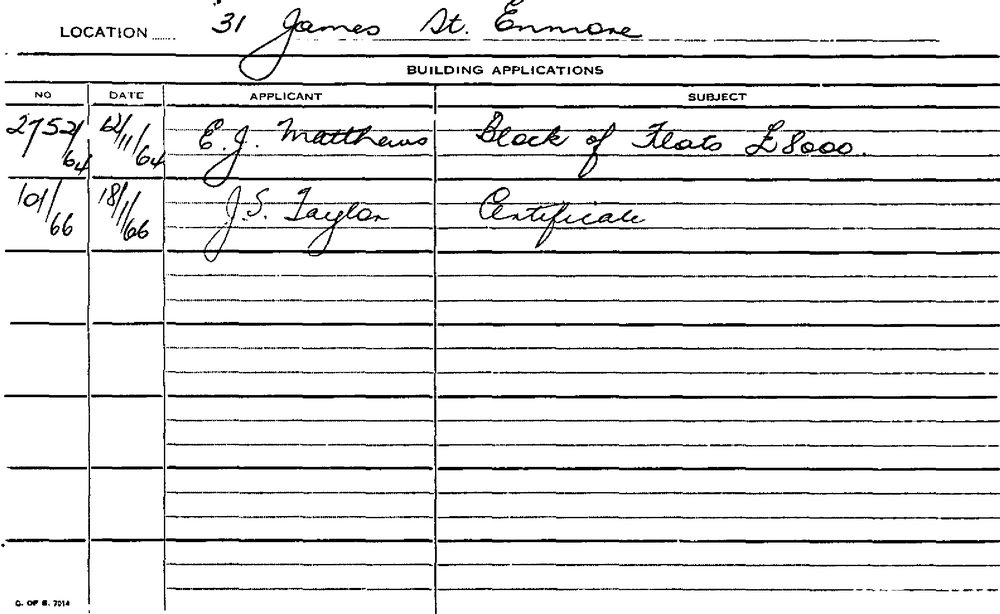 LOCATION 31 James St. Enmore
BUILDING APPLICATIONS
NO DATE APPLICANT SUBJECT
2752/64 12/11/64 E. J. Matthews Block of Flats £8000.
101/66 18/1/66 J. S. Taylor Certificate
G. OF S. 7014